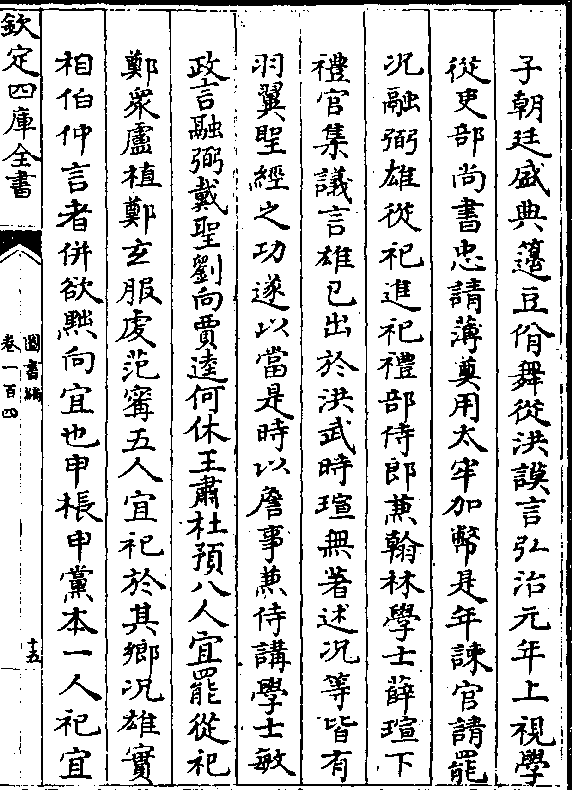 子朝廷盛典籩豆佾舞從洪謨言弘治元年上視學
從吏部尚書忠請薄奠用太牢加幣是年諫官請罷
况融弼雄從祀進祀禮部侍郎兼翰林學士薛瑄下
禮官集議言雄已出於洪武時瑄無著述况等皆有
羽翼聖經之功遂以當是時以詹事兼侍講學士敏
政言融弼戴聖劉向賈逵何休王肅杜預八人宜罷從祀
鄭衆盧植鄭玄服虔范甯五人宜祀於其鄉况雄實
相伯仲言者併欲黜向宜也申棖申黨本一人祀宜
欽定四庫全書
圖書編
卷一百四
十五